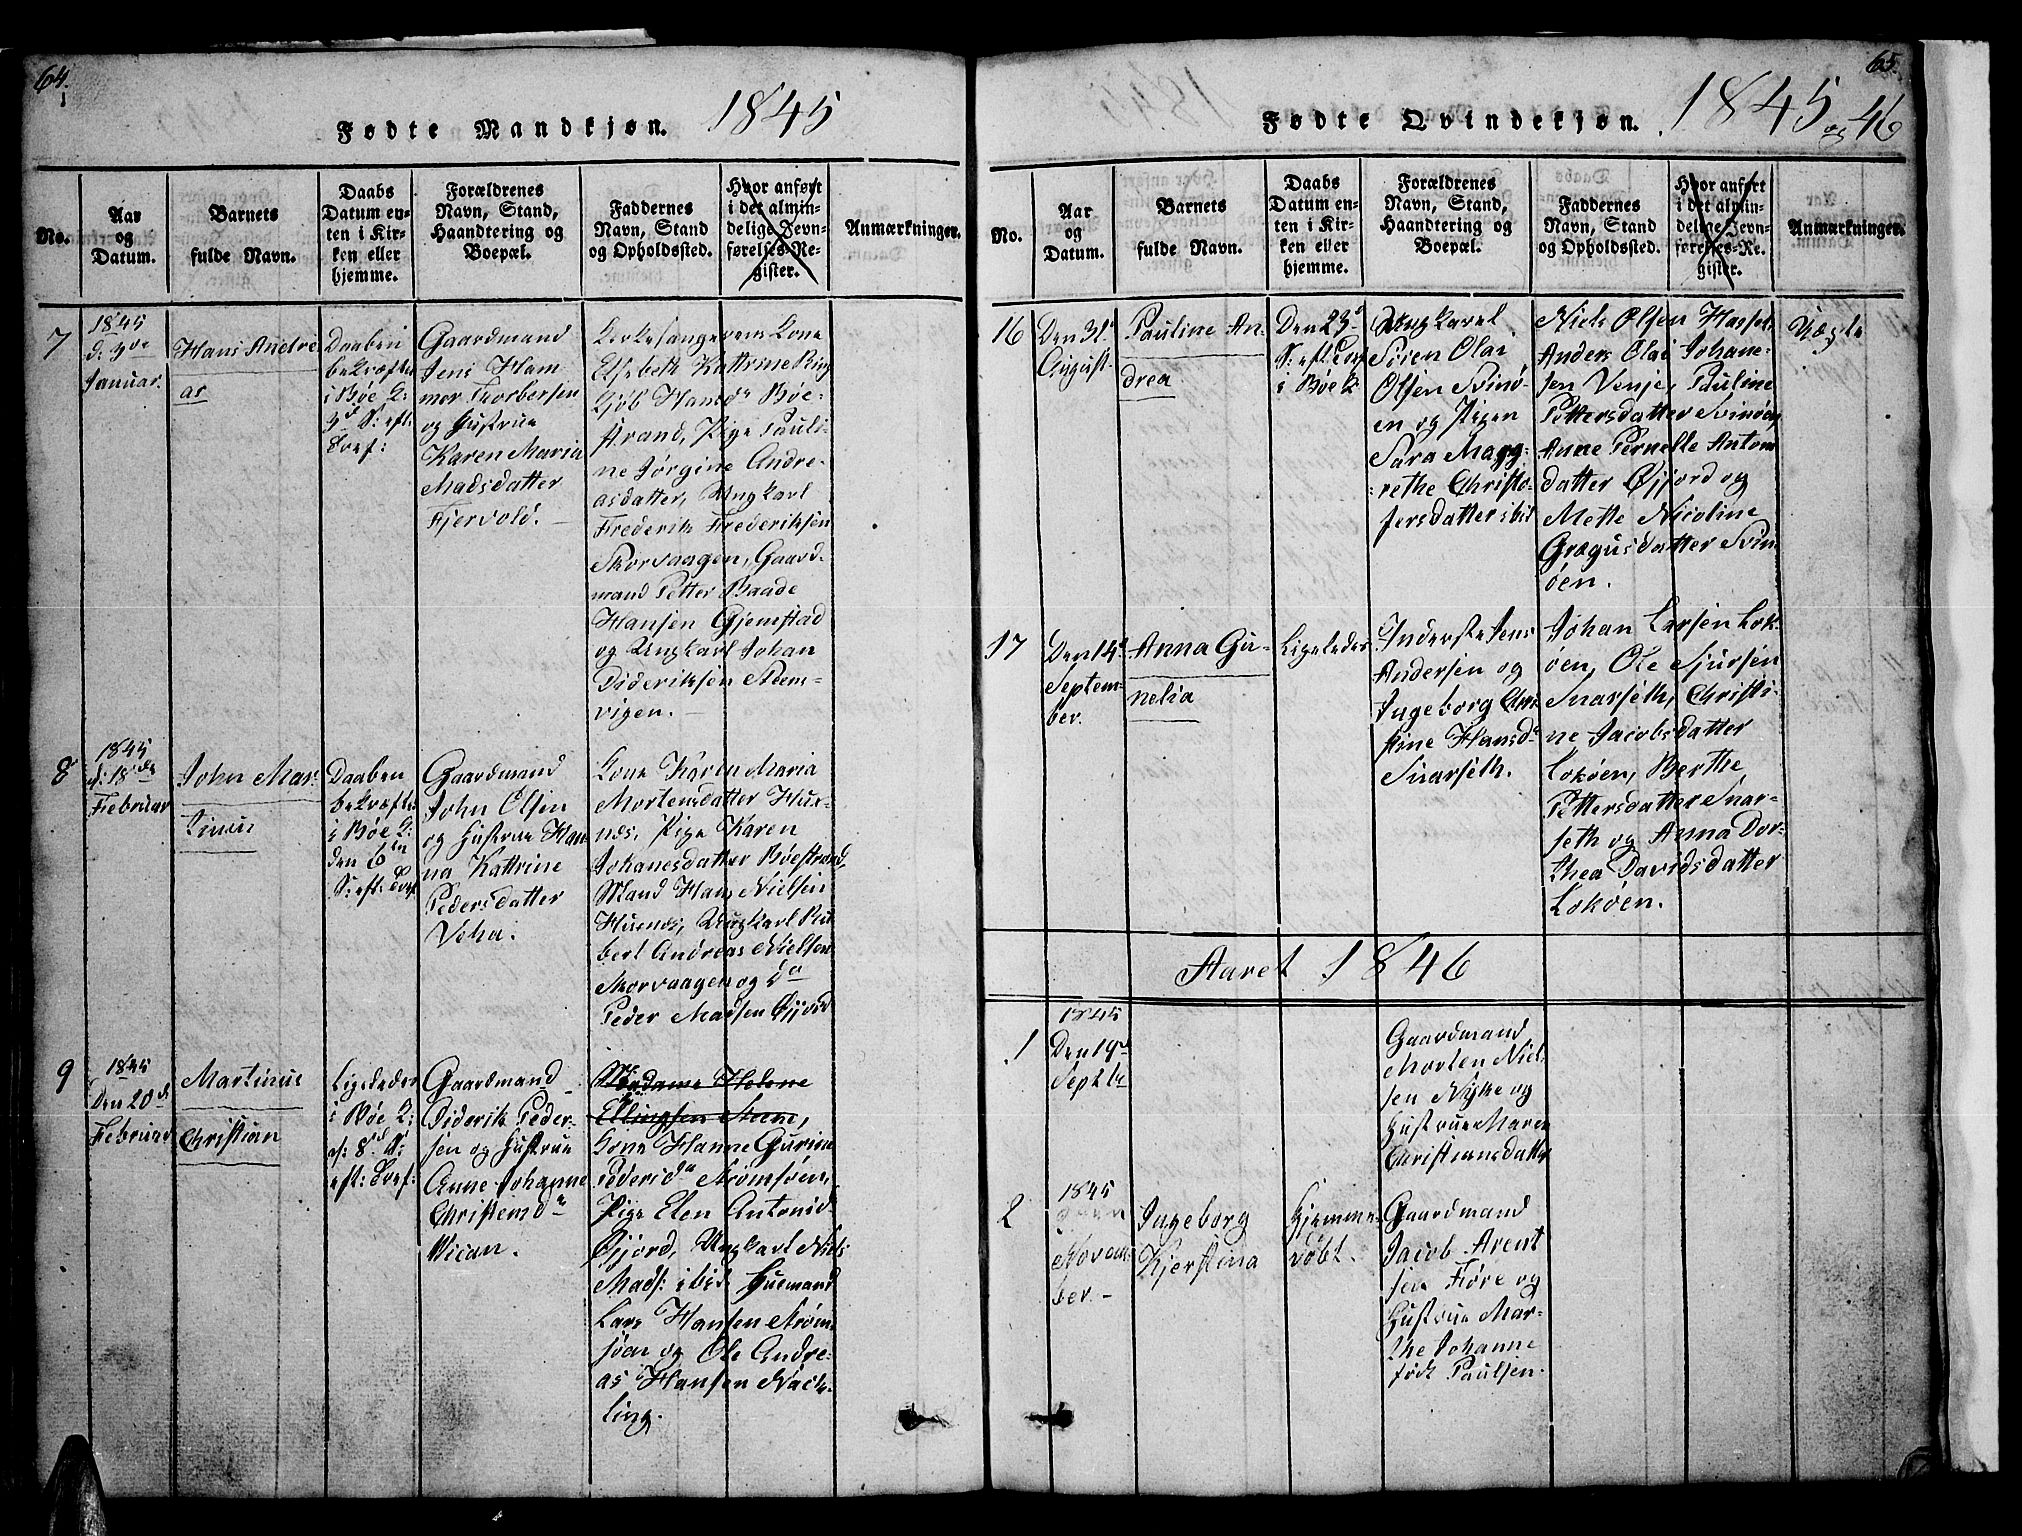 64.
Fødte Mandkjøn. 1845
No.
Aar
og
Datum.
Barnets
fulde Navn.
Daabs
Datum en-
ten i Kir-
ken eller
hjemme.
Forældrenes
Navn, Stand,
Haandtering og
Boepæl.
Faddernes
Navn, Stand
og Opholdssted.
Hvor anført
i det almin-
delige Jevn-
førelses-Re-
gister.
Anmærkninger.
7
1845
d: 3de
Januar.
Hans Andre-
as
Daaben
bekræftet
i Bøe K:
3d S: eft:
Gaardmand
Jens Ham
mer Thorbersen
og Hustrue
Karen Maria
Madsdatter
Fjervold.
Kirkesangerens Kone
Elsebeth Kathrine Ring
Hansdr Bøe-
strand, Pige Pauli-
ne Jørgine Andre-
asdatter, Ungkarl
Frederik Frederiksen
Skorvaagen, Gaard-
mand Petter Baade
Hansen Gjemstad
og Ungkarl Johan
Dideriksen
vigen.
8
1845
d: 15de
Februar
John Mar-
tinus
Daaben
bekræftet
i Bøe K:
den 6te
S: eft:
Gaardmand
John Olsen
og Hustrue Han
na Kathrine
Pedersdatter
Veha.
Kone Karen Maria
Mortensdatter Huv-
næs, Pige Karen
Johanesdatter Bøestrand,
Mand Hans Nielsen
Ungkarl
bert Andreas Nielsen
Skorvaagen og do
Peder Madsen Øijord
9
1845
Den 20de
Februar
Martinus
Christian
Ligeledes
i Bøe K:
8d S:
eft:
Gaardmand
Diderik Peder-
sen og Hustrue
Anne Johanne
Christensdr
Vican.
Madame Helene
Ellingsen Steene,
Kone Hanne Gurine
Pedersdr Strømsøen,
Pige Elen Antonsd.
Øijord, Ungkarl Niels
Mads: ibid Huusmand
Lars Hansen Strøm-
søen og Ole Andre-
as Hansen
ling.
65.
Fødte Qvindekjøn. 1845 og 46
No.
Aar
og
Datum.
Barnets
fulde Navn.
Daabs
Datum en-
ten i Kir-
ken eller
hjemme.
Forældrenes
Navn, Stand,
Haandtering og
Boepæl.
Faddernes
Navn, Stand
og Opholdssted.
Hvor anført
i det almin-
delige Jevn-
førelses-Re-
gister.
Anmærkninger.
16
Den 31te
August
Pauline An-
drea
Den 23d
S: eft:
i Bøe K
Ungkarl
Søren Olai
Olsen Svinø-
en og Pigen
Sara Magg-
rethe Christo-
fersdatter ibid
Niels Olsen Hassel
Anders Olai Johane-
sen Venje, Pauline
Pettersdatter Svinøen
Anne Pernelle Anton
datter Øijord og
Mette Nicoline
Græqusdatter Svin-
øen.
Uægte
17
Den 14d
Septem-
ber.
Anna Gu-
nelia
Ligeledes
Inderste Jens
Andersen og
Ingeborg Chri
stine Hansdr
Snarseth.
Johan Larsen Lok-
øen, Ole Sjursen
Snarseth, Christi-
ne Jacobsdatter
Lokøen, Berthe
Pettersdatter Snar-
seth og Anna Dor-
thea Davidsdatter
Lokøen.
Aaret 1846
1
1845
Den 19d
Septb
Gaardmand
Morten Niel-
sen Nyke og
Hustrue Maren
Christiansdatter
2
1845
Novem
ber.
Ingeborg
Kjerstina
Hjemme-
døbt.
Gaardmand
Jacob Arent
sen Føre og
Hustrue Mar-
the Johanne
født Paulsen.